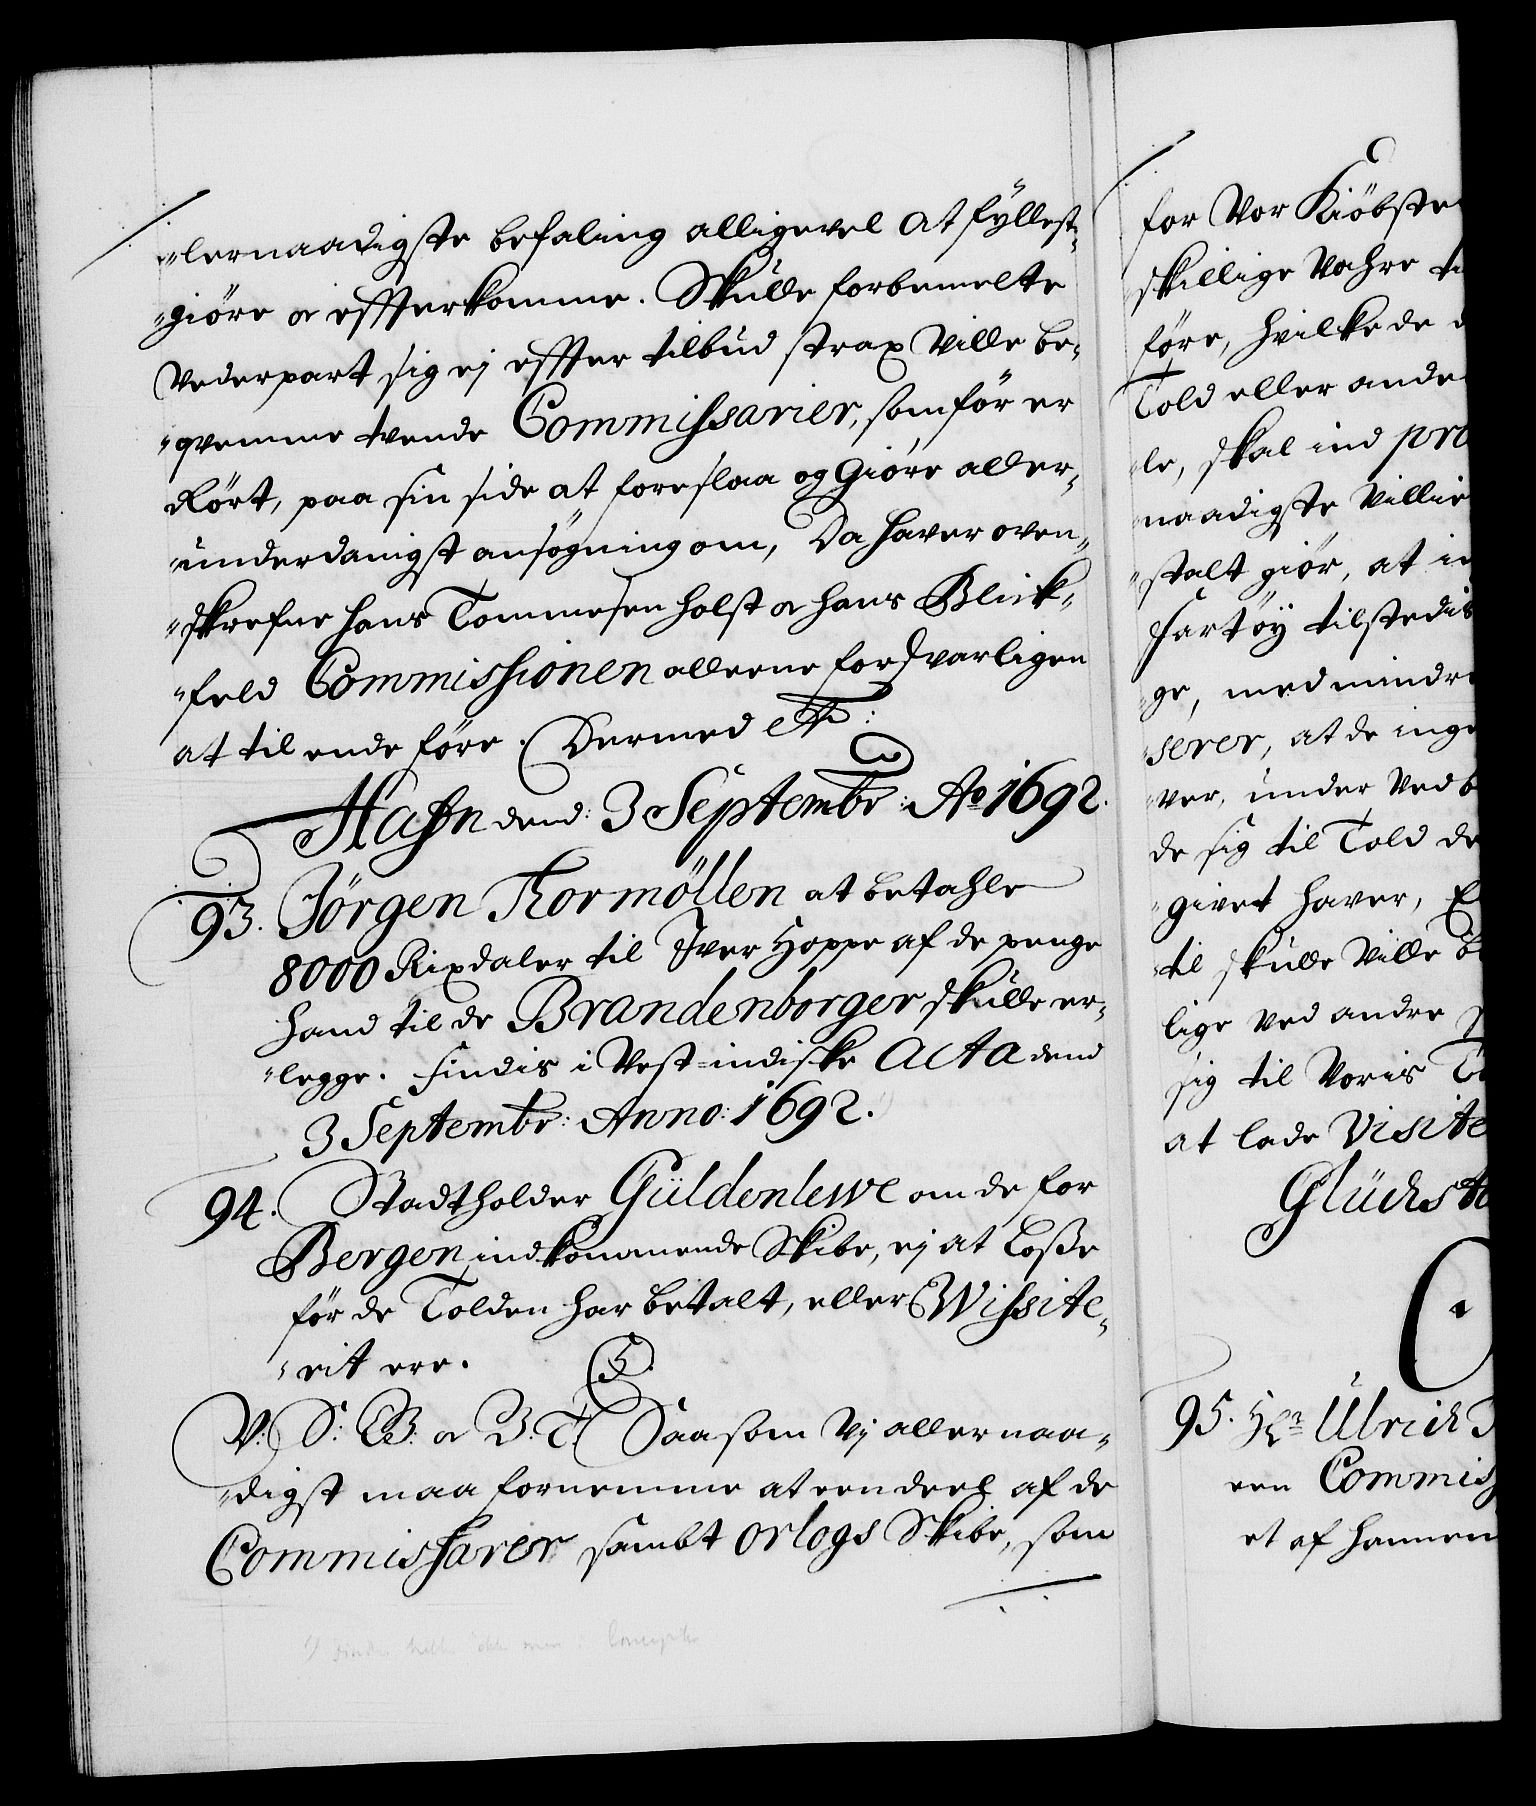 "lernaadigste befaling alligevel at fyllest¬
"giöre oc effterkomme. Skulle forbemelte
Vederpart sig ej effter tilbud strax Ville be¬
"qvemme tvende Commissarier, som för er
Rört, paa sin side at foreslaa og Giöre aller¬
"underdanigst ansøgning om, Da haver oven¬
"skrefne Hans Tommesen Holst oc Hans Blick¬
"feld Commissionen alleene forsvarligen
at til ende före. Dermed etc:
Hafn dend: 3 Septembr: Ao 1692.
93. Jörgen Thormöllen at betahle
8000 Rixdaler til Iver Hoppe af de penge
Hand til de Brandenborger skulle er¬
"legge. Findis i Vest-indiske Acta dend
3 Septembr: Anno: 1692.
94. Stadtholder Güldenlewe om de for
Bergen indkommende Skibe, ej at Losse
för de Tolden har betalt, eller Wissite¬
"rit ere. C5.
V: S: G: B: oc B: T: Saasom Vj allernaa¬
"digst maa fornemme at een deel af de
Commissarer sambt Orlogs Skibe, som
for Vor Kiöbste
skillige Vahre ti
före, hvilke de
Told eller ande
"le, skal ind pro
"naadigste Villie
"stalt giör, at in
Fartöy tilstedis
"ge, med mindre
"serer, at de inge
"ver, under Ved b
de sig til Told de
"givet haver, E
til skulle Ville
lige Ved andre
sig til Voris To
at lade Visite
Glücksta
95. Hr Ulrich
een Commiss
et af hannem